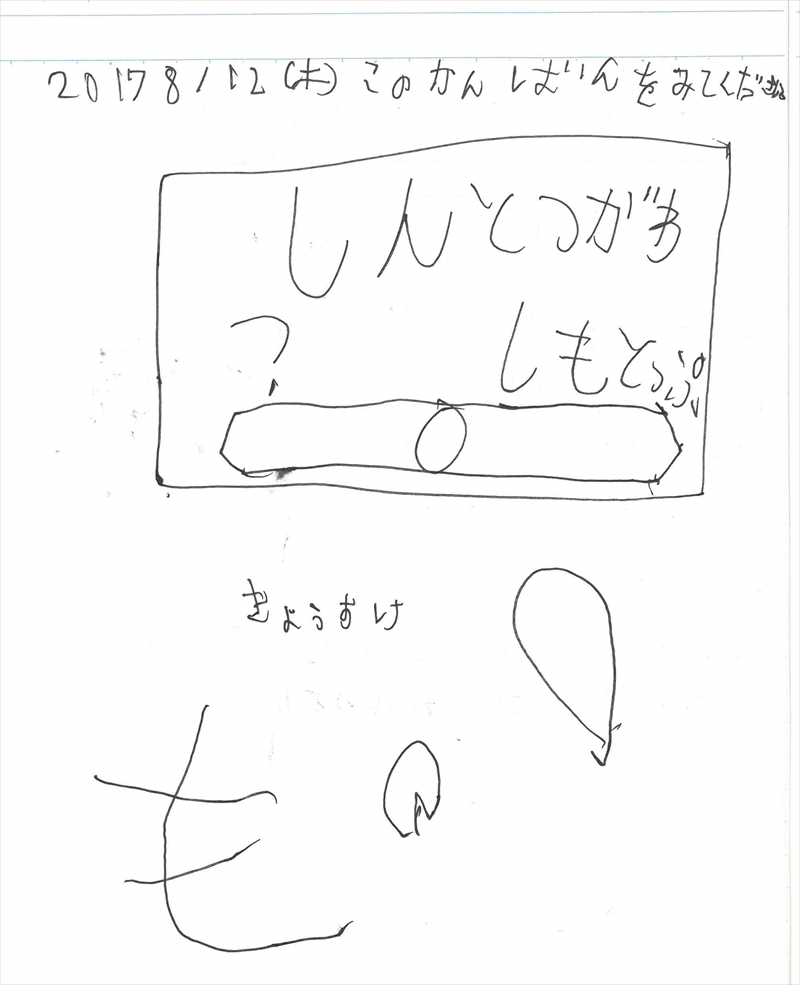 2017 8/12(木)このかんばんをみてください
しんとつがわ
?
しもとっぷ
きょうすけ
も